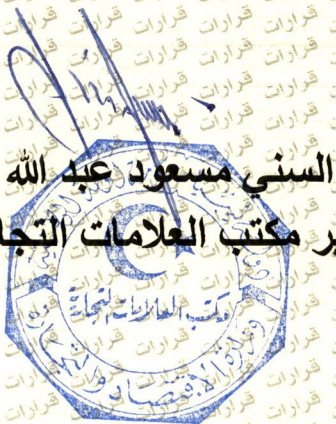 السني مسعود عبد الله
ر مكتب العلامات التجا
مكتب العلامات التجارية
وزارة الاقتصاد والتجارة
قرارات